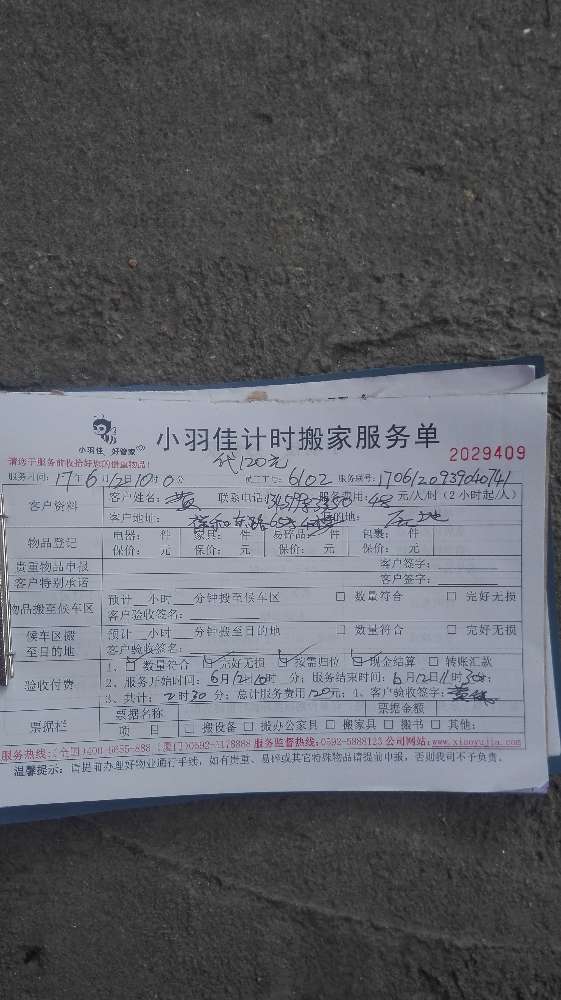 小羽佳 好管家
小羽佳计时搬家服务单
2029409
请您于服务前收拾好您的贵重物品!
代120元
服务时间: 17年6月12日10时0分 员工工号: 6102 服务账号: 170612093904041
客户资料 客户姓名: 黄 联系电话: 服务费用: 48 元/人/时 (2小时起/人)
客户地址: 目的地:
物品登记 电器: 件 家具: 件 易碎品: 件 包裹: 件
保价: 元 保价: 元 保价: 元 保价: 元
贵重物品申报 客户签字:
客户特别承诺 客户签字:
物品搬至候车区 预计__小时__分钟搬至候车区 □ 数量符合 □ 完好无损
客户验收签名:
候车区搬至目的地 预计__小时__分钟搬至目的地 □ 数量符合 □ 完好无损
客户验收签名:
验收付费 1、☑数量符合 ☑完好无损 ☑按需归位 ☑现金结算 □ 转账汇款
2、服务开始时间: 6月12日10时 分; 服务结束时间: 6月12日11时30分;
3、共计: 2时30分; 总计服务费用120元; 4、客户验收签字:
票据栏 票据名称 票据金额
项 目 □ 搬设备 □ 搬办公家具 □ 搬家具 □ 搬书 □ 其他:
服务热线: [全国]400-6835-888 [厦门]0592-5178888 服务监督热线: 0592-5888123 公司网站: www.xiaoyujia.com
温馨提示: 请提前办理好物业通行手续, 如有贵重、易碎或其它特殊物品请提前申报, 否则我司不予负责。